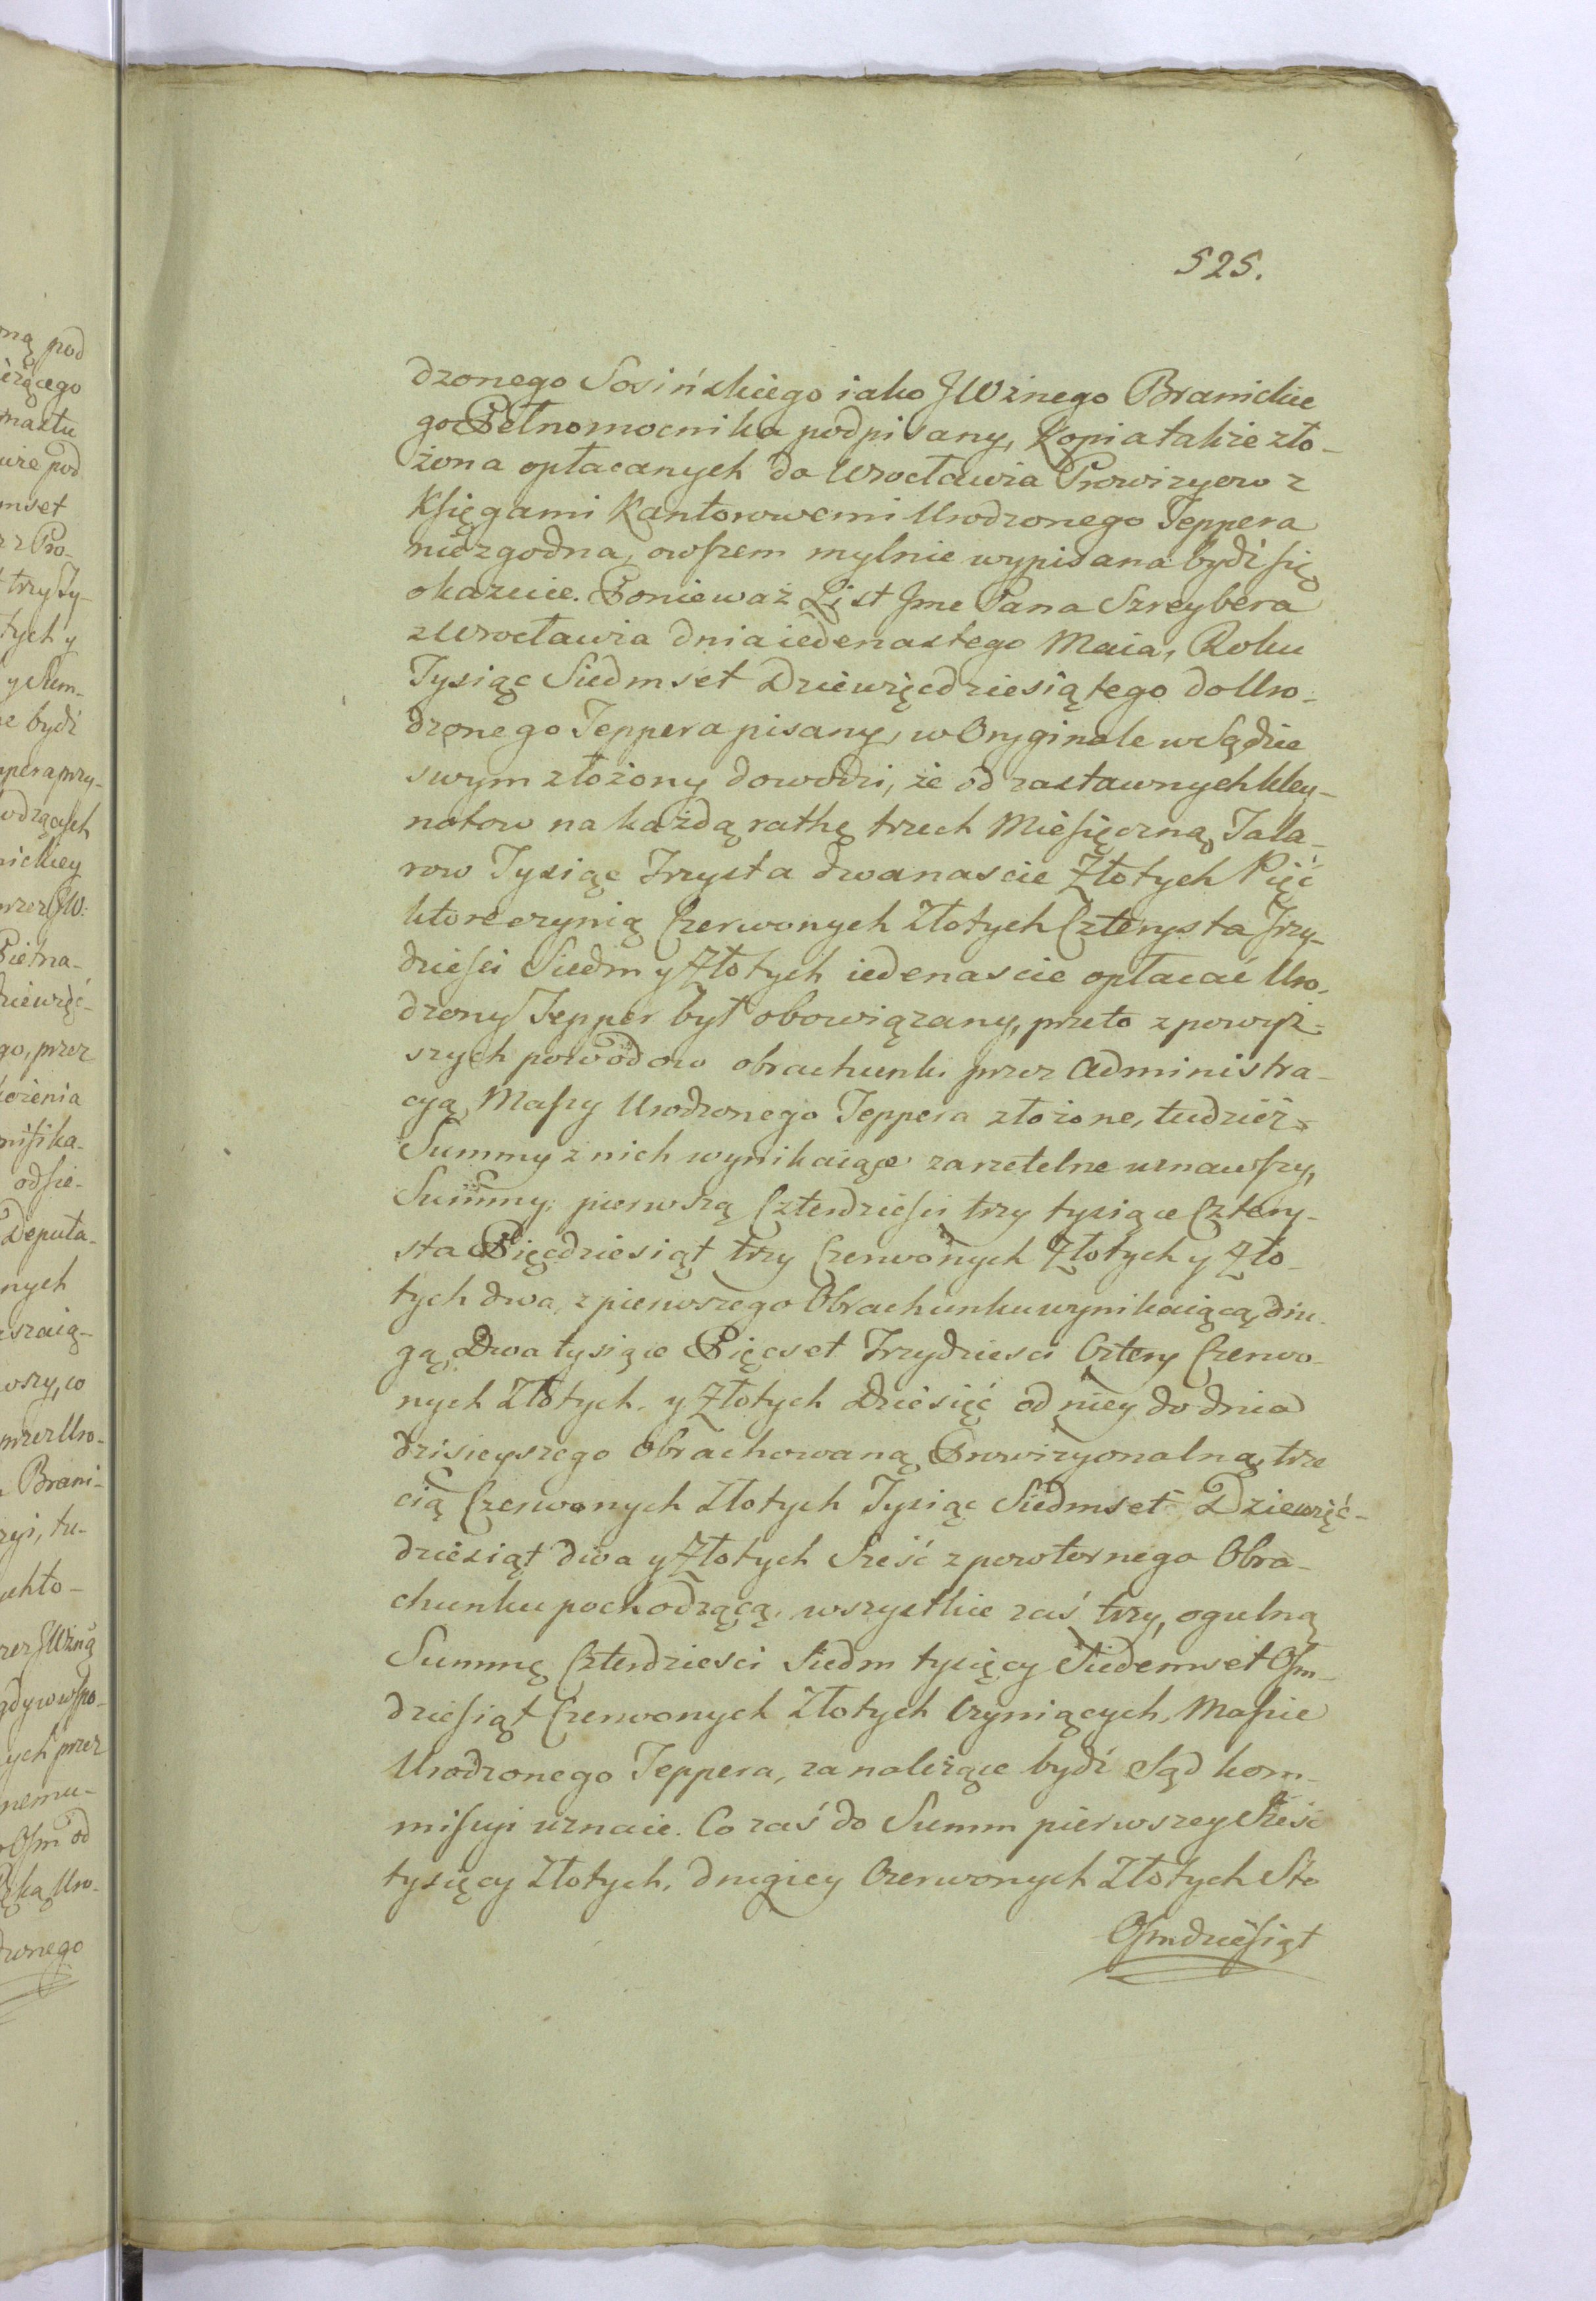 525.
dzonego Sosińskiego iako JWżnego Branickie
go Pełnomocnika podpisany, Kopia także zło-
żona opłacanych do Wrocławia Prowizyow z
Księgami Kantorowemi Urodzonego Teppera
niezgodna, owszem mylnie wypisana bydź się
okazuie. Ponieważ List Jme Pana Szreybera
z Wrocławia dnia iedenastego Maia, Roku
Tysiąc Siedmset Dziewięcdziesiątego do Uro-
dzonego Teppera pisany, w Oryginale w Sądzie
swym złożony dowodzi, że od zastawnych kley-
notow na każdą rathę trzech Miesięczną Tala-
row Tysiąc Trzysta dwanascie Złotych Pięć
ktore czynią Czerwonych Złotych Czterysta Trzy-
dziesci Siedm y Złotych iedenascie opłacać Uro-
dzony Tepper był obowiązany, przeto z powyż-
szych powodow obrachunki przez Administra-
cyą Massy Urodzonego Teppera złożone, tudzież
Summy z nich wynikaiące za rzetelne uznawszy,
Summy: pierwszą Czterdziesci trzy tysiące Cztery-
sta Pięcdziesiąt trzy Czerwonych Złotych y Zło-
tych dwa, z pierwszego Obrachunku wynikaiącą, dru-
gą Dwa tysiące Pięcset Trzydziesci Cztery Czerwo-
nych Złotych, y Złotych Dziesięć od niey do dnia
dzisieyszego Obrachowaną Prowizyonalną, trze
cią Czerwonych Złotych Tysiąc Siedmset Dziewięć-
dziesiąt dwa y Złotych Sześć z powtornego Obra-
chunku pochodzącą, wszystkie zaś trzy, ogulną
Summę Czterdziesci Siedm tysięcy Siedemset Osm-
dziesiąt Czerwonych Złotych Czyniących, Massie
Urodzonego Teppera, za należące bydź Sąd kom-
missyi uznaie. Co zaś do Summ pierwszey Sześć
tysięcy Złotych, drugiey Czerwonych Złotych Sto
Osmdziesiąt